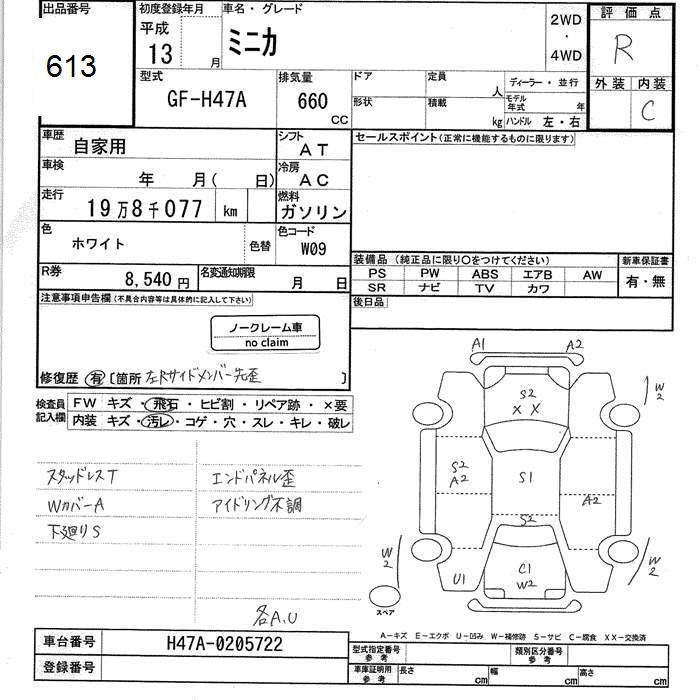 出品番号
613
初度登録年月
平成
13 月
車名・グレード
ミニカ
2WD
・
4WD
評価点
R
外装 内装
C
型式
GF-H47A
排気量
660 CC
ドア
形状
定員 人
積載 kg
ディーラー・並行
モデル年式 年
ハンドル 左・右
車歴
自家用
シフト
AT
車検
年 月( 日)
冷房
AC
走行
19万8千077 km
燃料
ガソリン
色
ホワイト
色替
色コード
W09
R券
8,540円
名変通知期限
月 日
セールスポイント(正常に機能するものに限ります)
装備品 (純正品に限り○をつけてください)
PS PW ABS エアB AW
SR ナビ TV カワ
新車保証書
有・無
後日品
注意事項申告欄(不具合内容等は具体的に記入して下さい)
ノークレーム車
no claim
修復歴 有 [箇所 左Rサイドメンバー先歪 ]
検査員記入欄
FW キズ・飛石・ヒビ割・リペア跡・×要
内装 キズ・汚レ・コゲ・穴・スレ・キレ・破レ
スタッドレスT
WカバーA
下廻りS
エンドパネル歪
アイドリング不調
各A,U
A1 A2
S2
X X
W2
S2
A2
S1
A2
S2
W2
U1
C1
W2
W2
スペア
A-キズ E-エクボ U-凹み W-補修跡 S-サビ C-腐食 XX-交換済
車台番号
H47A-0205722
登録番号
型式指定番号
参考
類別区分番号
参考
車庫証明用
参考
長さ cm
幅 cm
高さ cm